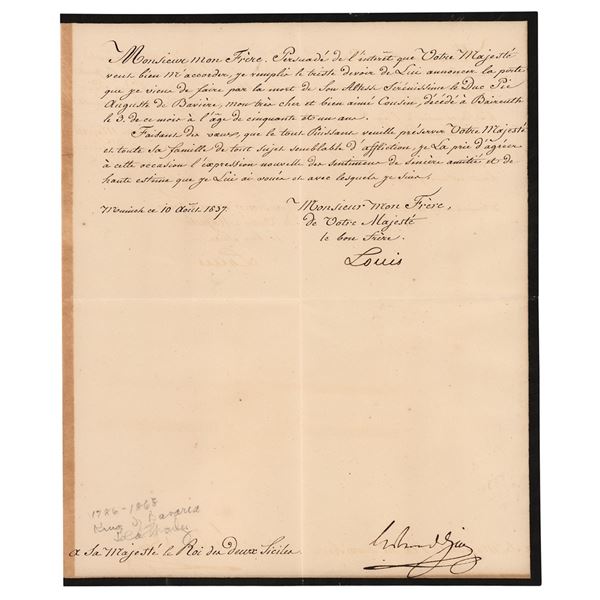 Monsieur mon Frère. Persuadé de l'intérêt que Votre Majesté
veut bien m'accorder, je remplis le triste devoir de Lui annoncer la perte
que je viens de faire par la mort de Son Altesse Sérénissime le Duc Pie
Auguste de Bavière, mon très cher et bien aimé Cousin, décédé à Baireuth
le 3. de ce mois à l'âge de cinquante et un ans.
Faisant des vœux, que le tout Puissant veuille préserver Votre Majesté
et toute Sa famille de tout sujet semblable d'affliction, je La prie d'agréer
à cette occasion l'expression nouvelle des sentimens de sincère amitié et de
haute estime que je Lui ai voués et avec lesquels je suis,
Munich ce 10 Août 1837.
Monsieur mon Frère,
de Votre Majesté
le bon frère.
Louis
1786-1868
King of Bavaria
à Sa Majesté le Roi des deux Siciles